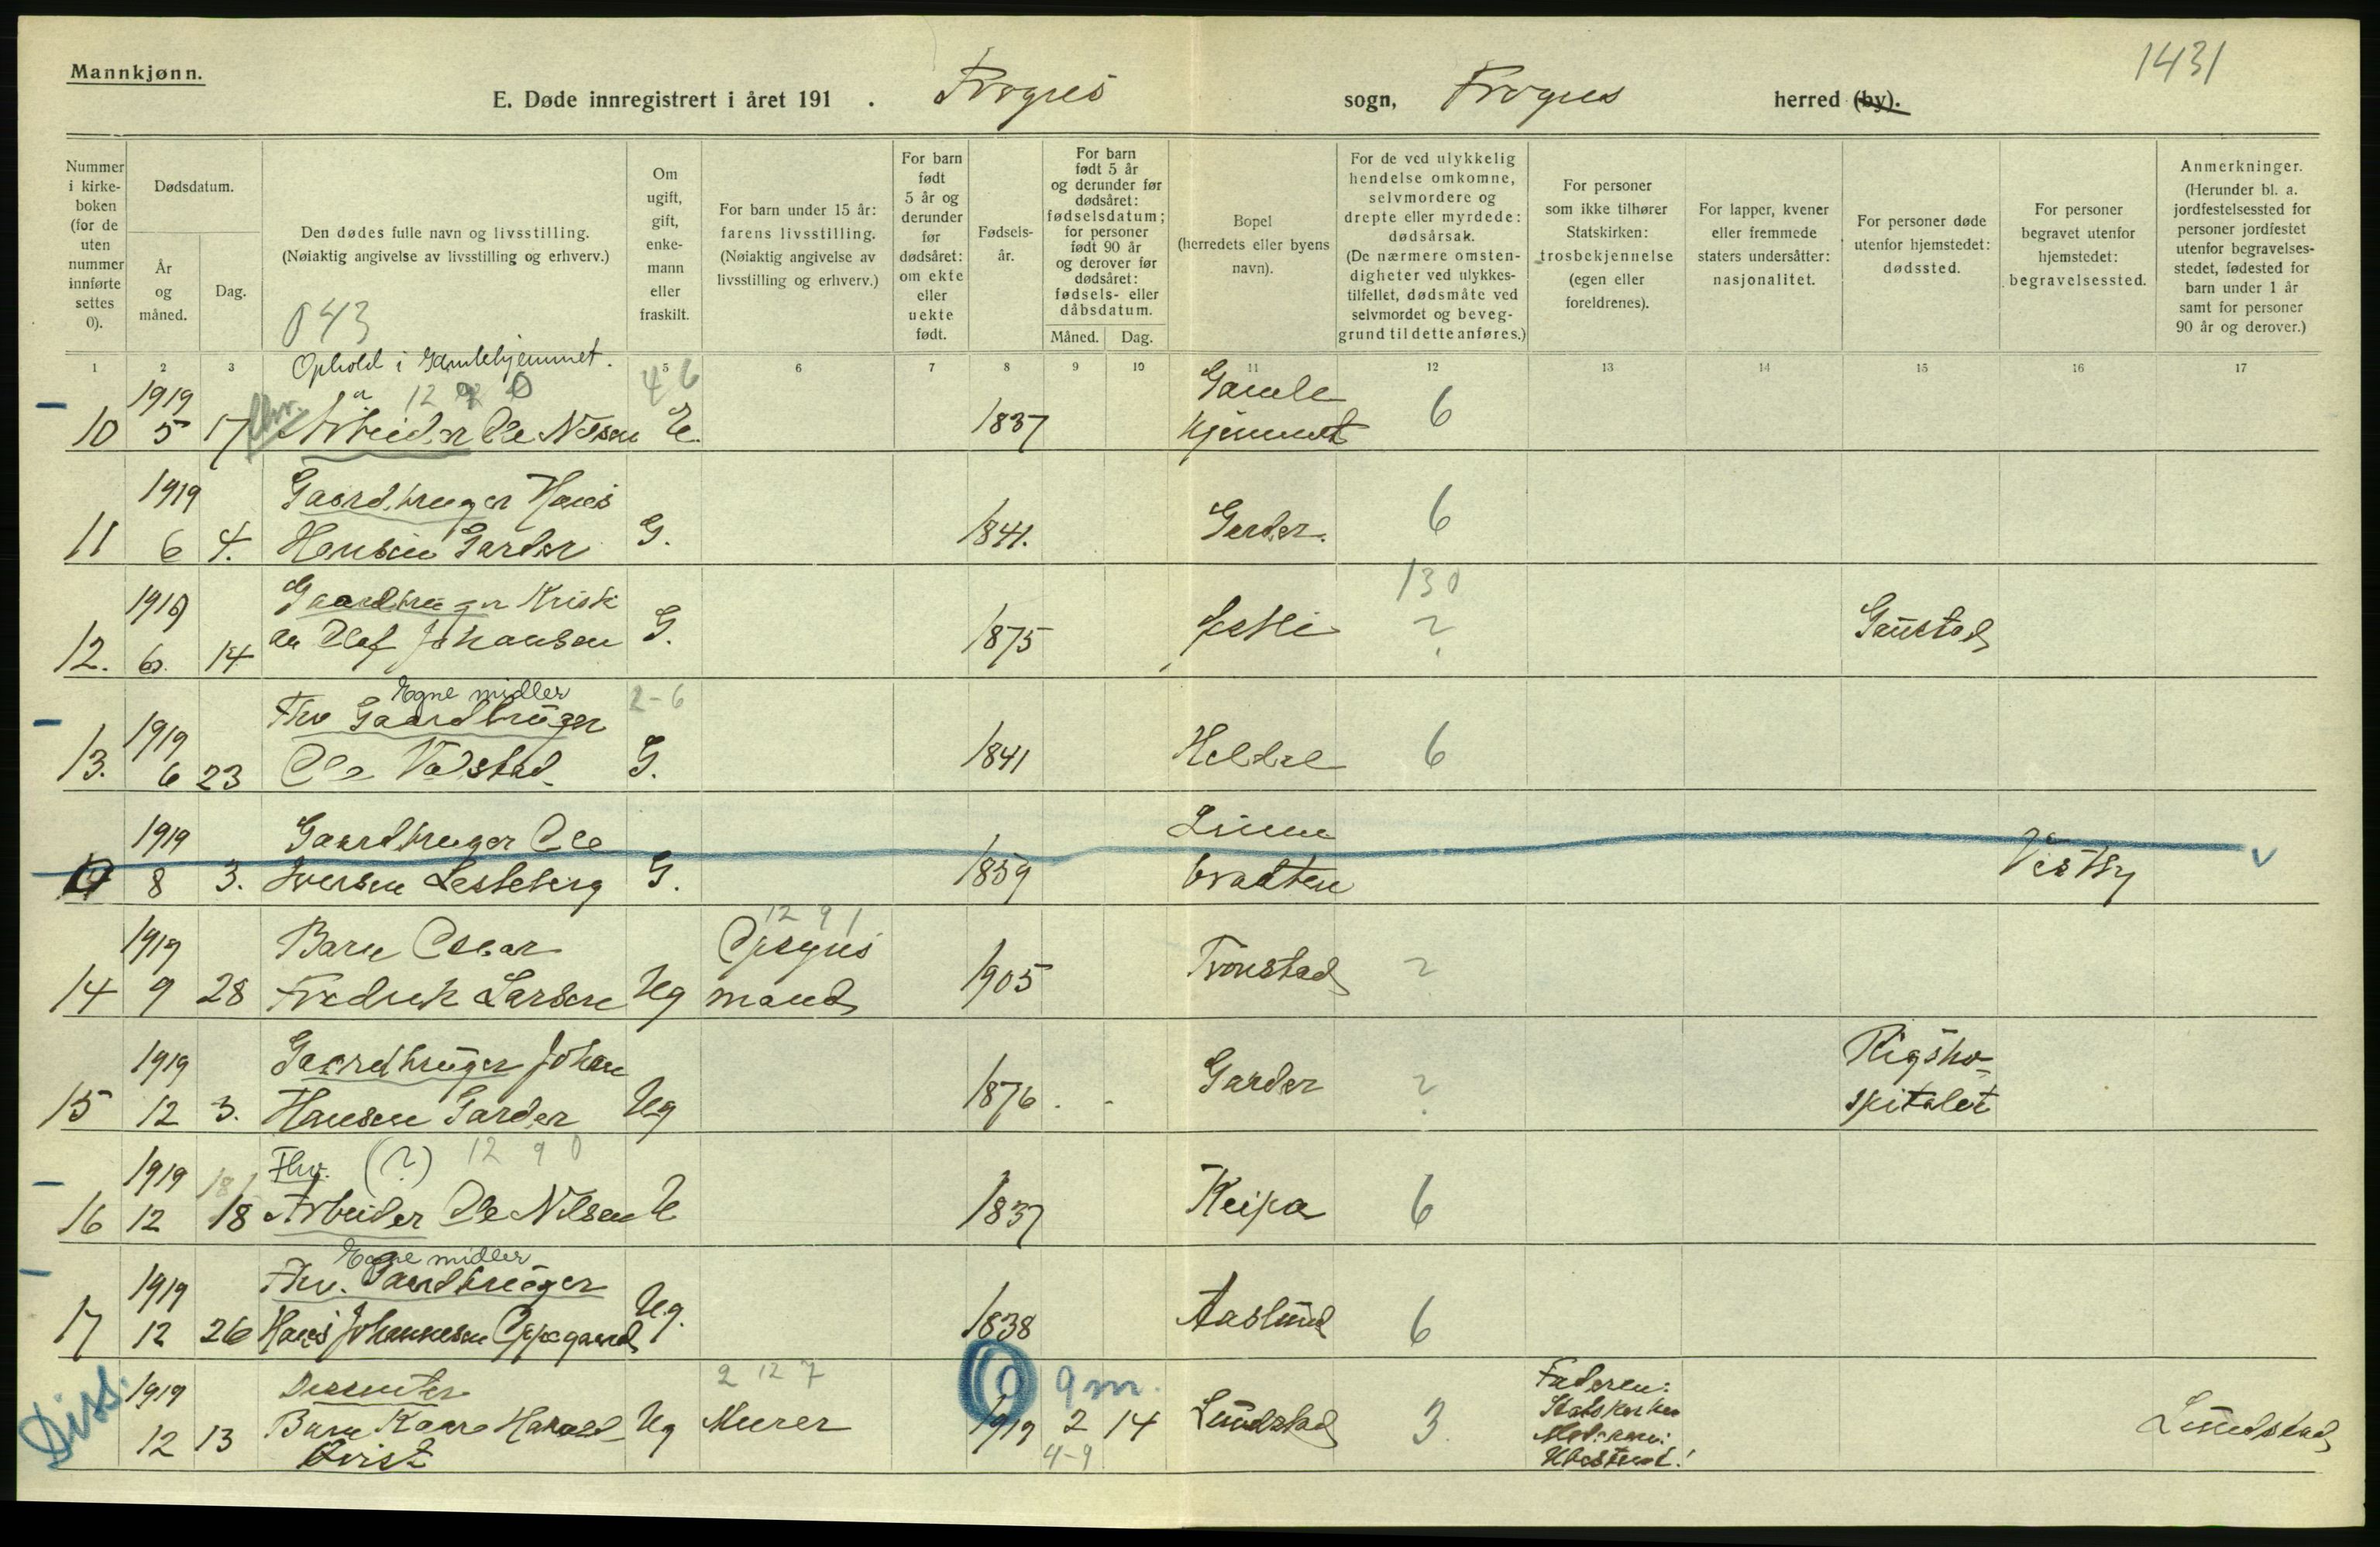 Mannkjønn.
1431
E. Døde innregistrert i året 191 . Frogn sogn, Frogn herred (by).
Nummer i kirkeboken (for de uten nummer innførte settes 0).
Dødsdatum.
År og måned.
Dag.
Den dødes fulle navn og livsstilling.
(Nøiaktig angivelse av livsstilling og erhverv.)
043
Om ugift, gift, enkemann eller fraskilt.
For barn under 15 år: farens livsstilling.
(Nøiaktig angivelse av livsstilling og erhverv.)
For barn født 5 år og derunder før dødsåret: om ekte eller uekte født.
Fødselsår.
For barn født 5 år og derunder før dødsåret: fødselsdatum; for personer født 90 år og derover før dødsåret: fødsels- eller dåbsdatum.
Måned. Dag.
Bopel (herredets eller byens navn).
For de ved ulykkelig hendelse omkomne, selvmordere og drepte eller myrdede: dødsårsak.
(De nærmere omstendigheter ved ulykkestilfellet, dødsmåte ved selvmordet og beveggrund til dette anføres.)
For personer som ikke tilhører Statskirken: trosbekjennelse (egen eller foreldrenes).
For lapper, kvener eller fremmede staters undersåtter: nasjonalitet.
For personer døde utenfor hjemstedet: dødssted.
For personer begravet utenfor hjemstedet: begravelsessted.
Anmerkninger.
(Herunder bl. a. jordfestelsessted for personer jordfestet utenfor begravelsesstedet, fødested for barn under 1 år samt for personer 90 år og derover.)
1 2 3 5 6 7 8 9 10 11 12 13 14 15 16 17
Ophold i Gamlehjemmet.
1919 12 9 0 4 6 Gamle 6
10 5 17 fhv. Arbeider Ole Nilsen E. 1837 hjemmet
1919 Gaardbruger Hans 6
11 6 4. Hansen Garder G. 1841. Garder.
1919 Gaardbruger Kristi 130
12. 6. 14 an Olaf Johansen G. 1875 ? Gaustad
Egne midler 2-6
1919 Fhv Gaardbruger
13. 6 23 Ole Vadstad G. 1841 Heldal 6
1919 Gaardbruger Ole
0 8 3. Iversen Lesteberg G. 1859 braaten Vestby v
1919 Barn Oscar 12 9 1 Opsyns
14 9 28 Fredrik Larsen Ug mand 1905 Tronstad ?
1919 Gaardbruger Johan Rigsho-
15 12 3. Hansen Garder Ug 1876 Garder ? spitalet
1919 18 Fhv. (?) 12 9 0
16 12 18 Arbeider Ole Nilsen E 1837 Keipa 6
Egne midler
1919 Fhv. Gaardbruger
17 12 26 Hans Johannesen Oppegaard Ug. 1838 Aaslund 6
Diss. 1919 Dissenter 2 12 7 0 9 m. Faderen:
12 13 Barn Kaare Harald Ug Murer 1919 2 14 Lundstad 3. Statskirken Lundstad
Qvist 4-9 Moderen: